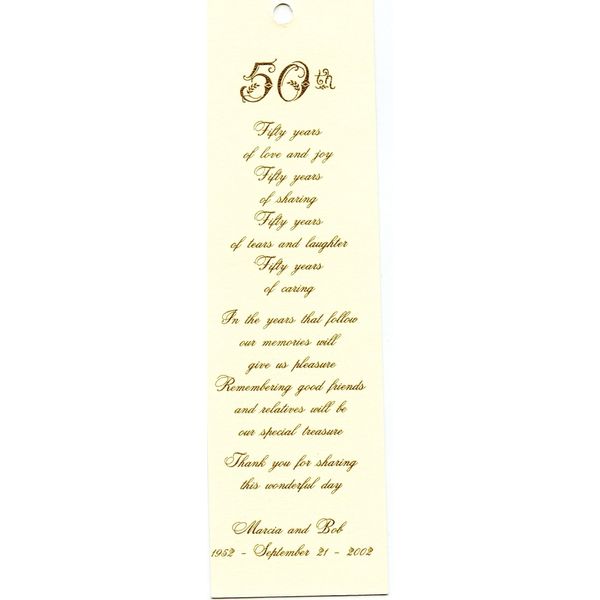 50th
Fifty years
of love and joy
Fifty years
of sharing
Fifty years
of tears and laughter
Fifty years
of caring
In the years that follow
our memories will
give us pleasure
Remembering good friends
and relatives will be
our special treasure
Thank you for sharing
this wonderful day
Marcia and Bob
1952 - September 21 - 2002